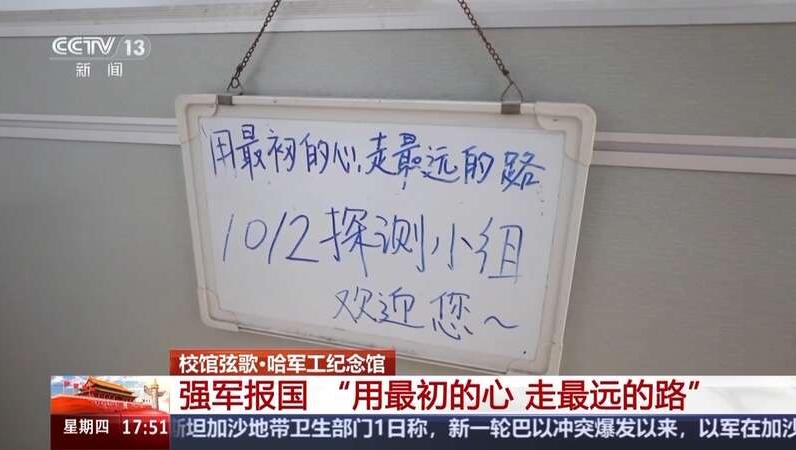 CCTV 13
新闻
用最初的心,走最远的路
1012探测小组
欢迎您~
校馆弦歌·哈军工纪念馆
强军报国 “用最初的心 走最远的路”
星期四 17:51 斯坦加沙地带卫生部门1日称，新一轮巴以冲突爆发以来，以军在加沙